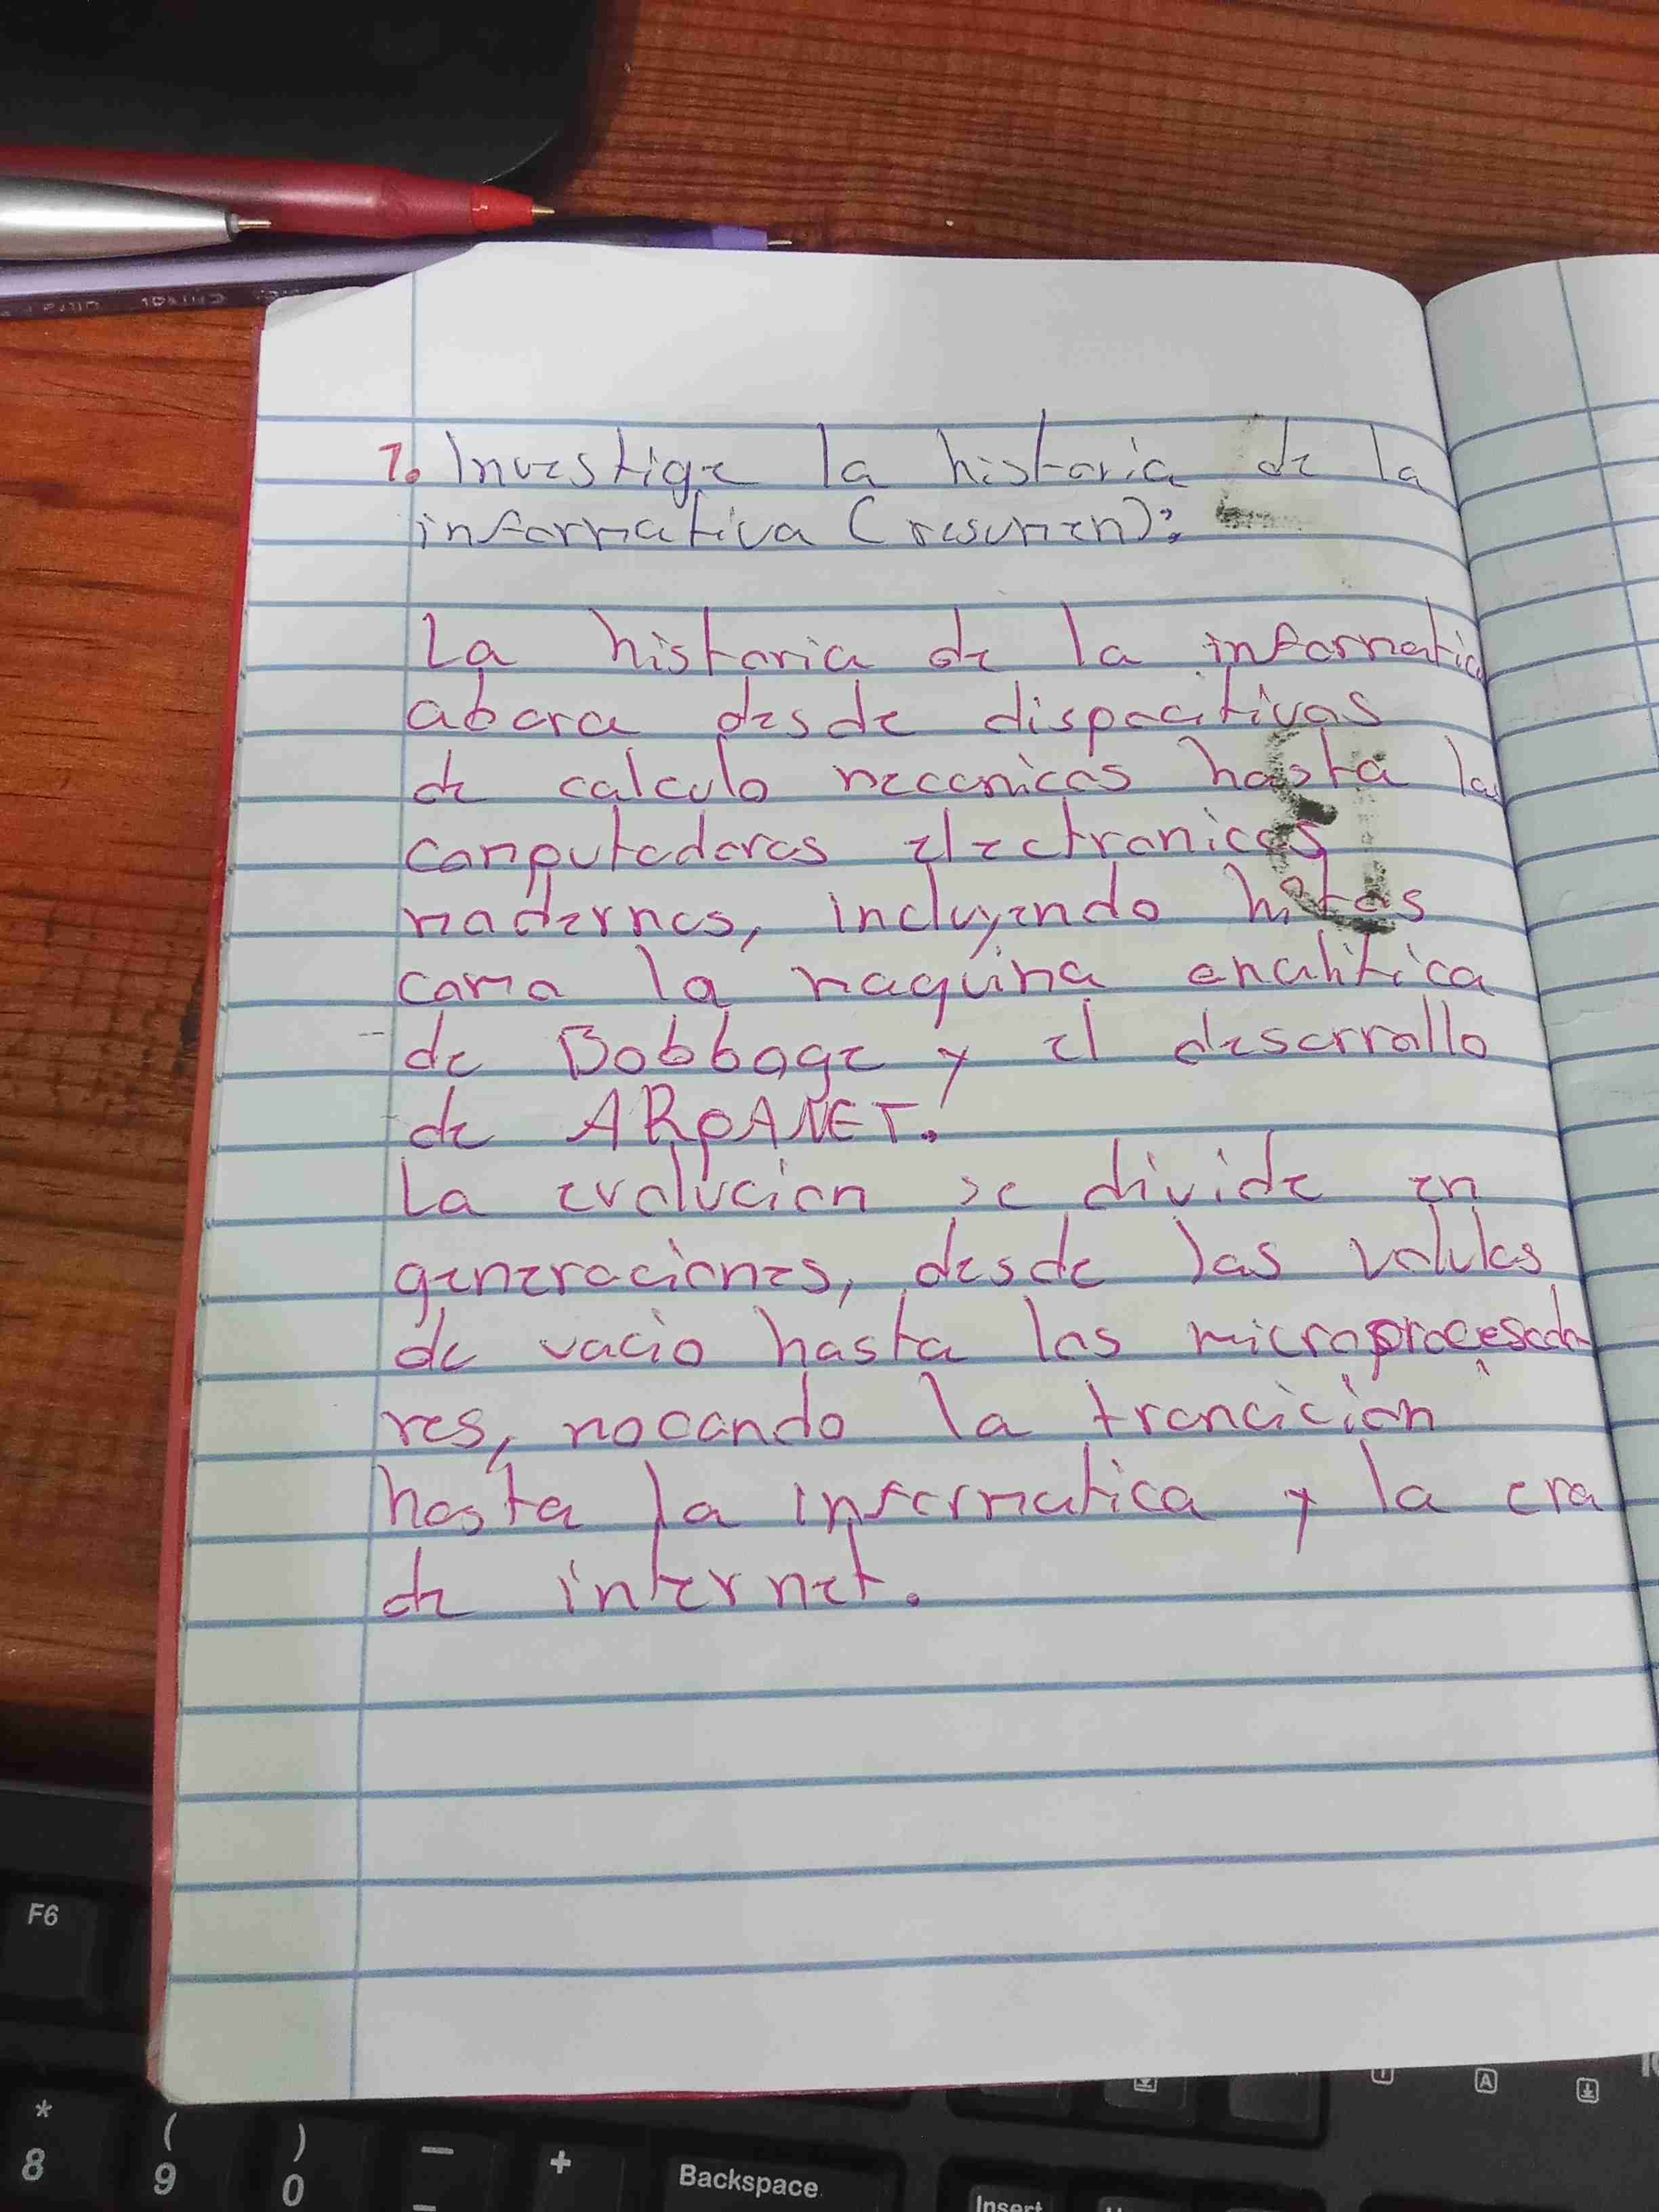 1. Investige la historia de la
informativa (resumen):
La historia de la informatic
abora desde dispocitivos
de calculo mecanicos hasta las
computadoras electronicas
modernas, incluyendo hitos
como la maquina enalitica
de Bobbage y el desarrollo
de ARPANET.
La evolucion se divide en
generaciones, desde las
de vacio hasta los microprocesado
res, mocando la trancición
hasta la informatica y la era
de internet.
F6
*
8
(
9
)
0
—
+
Backspace
Insert
A